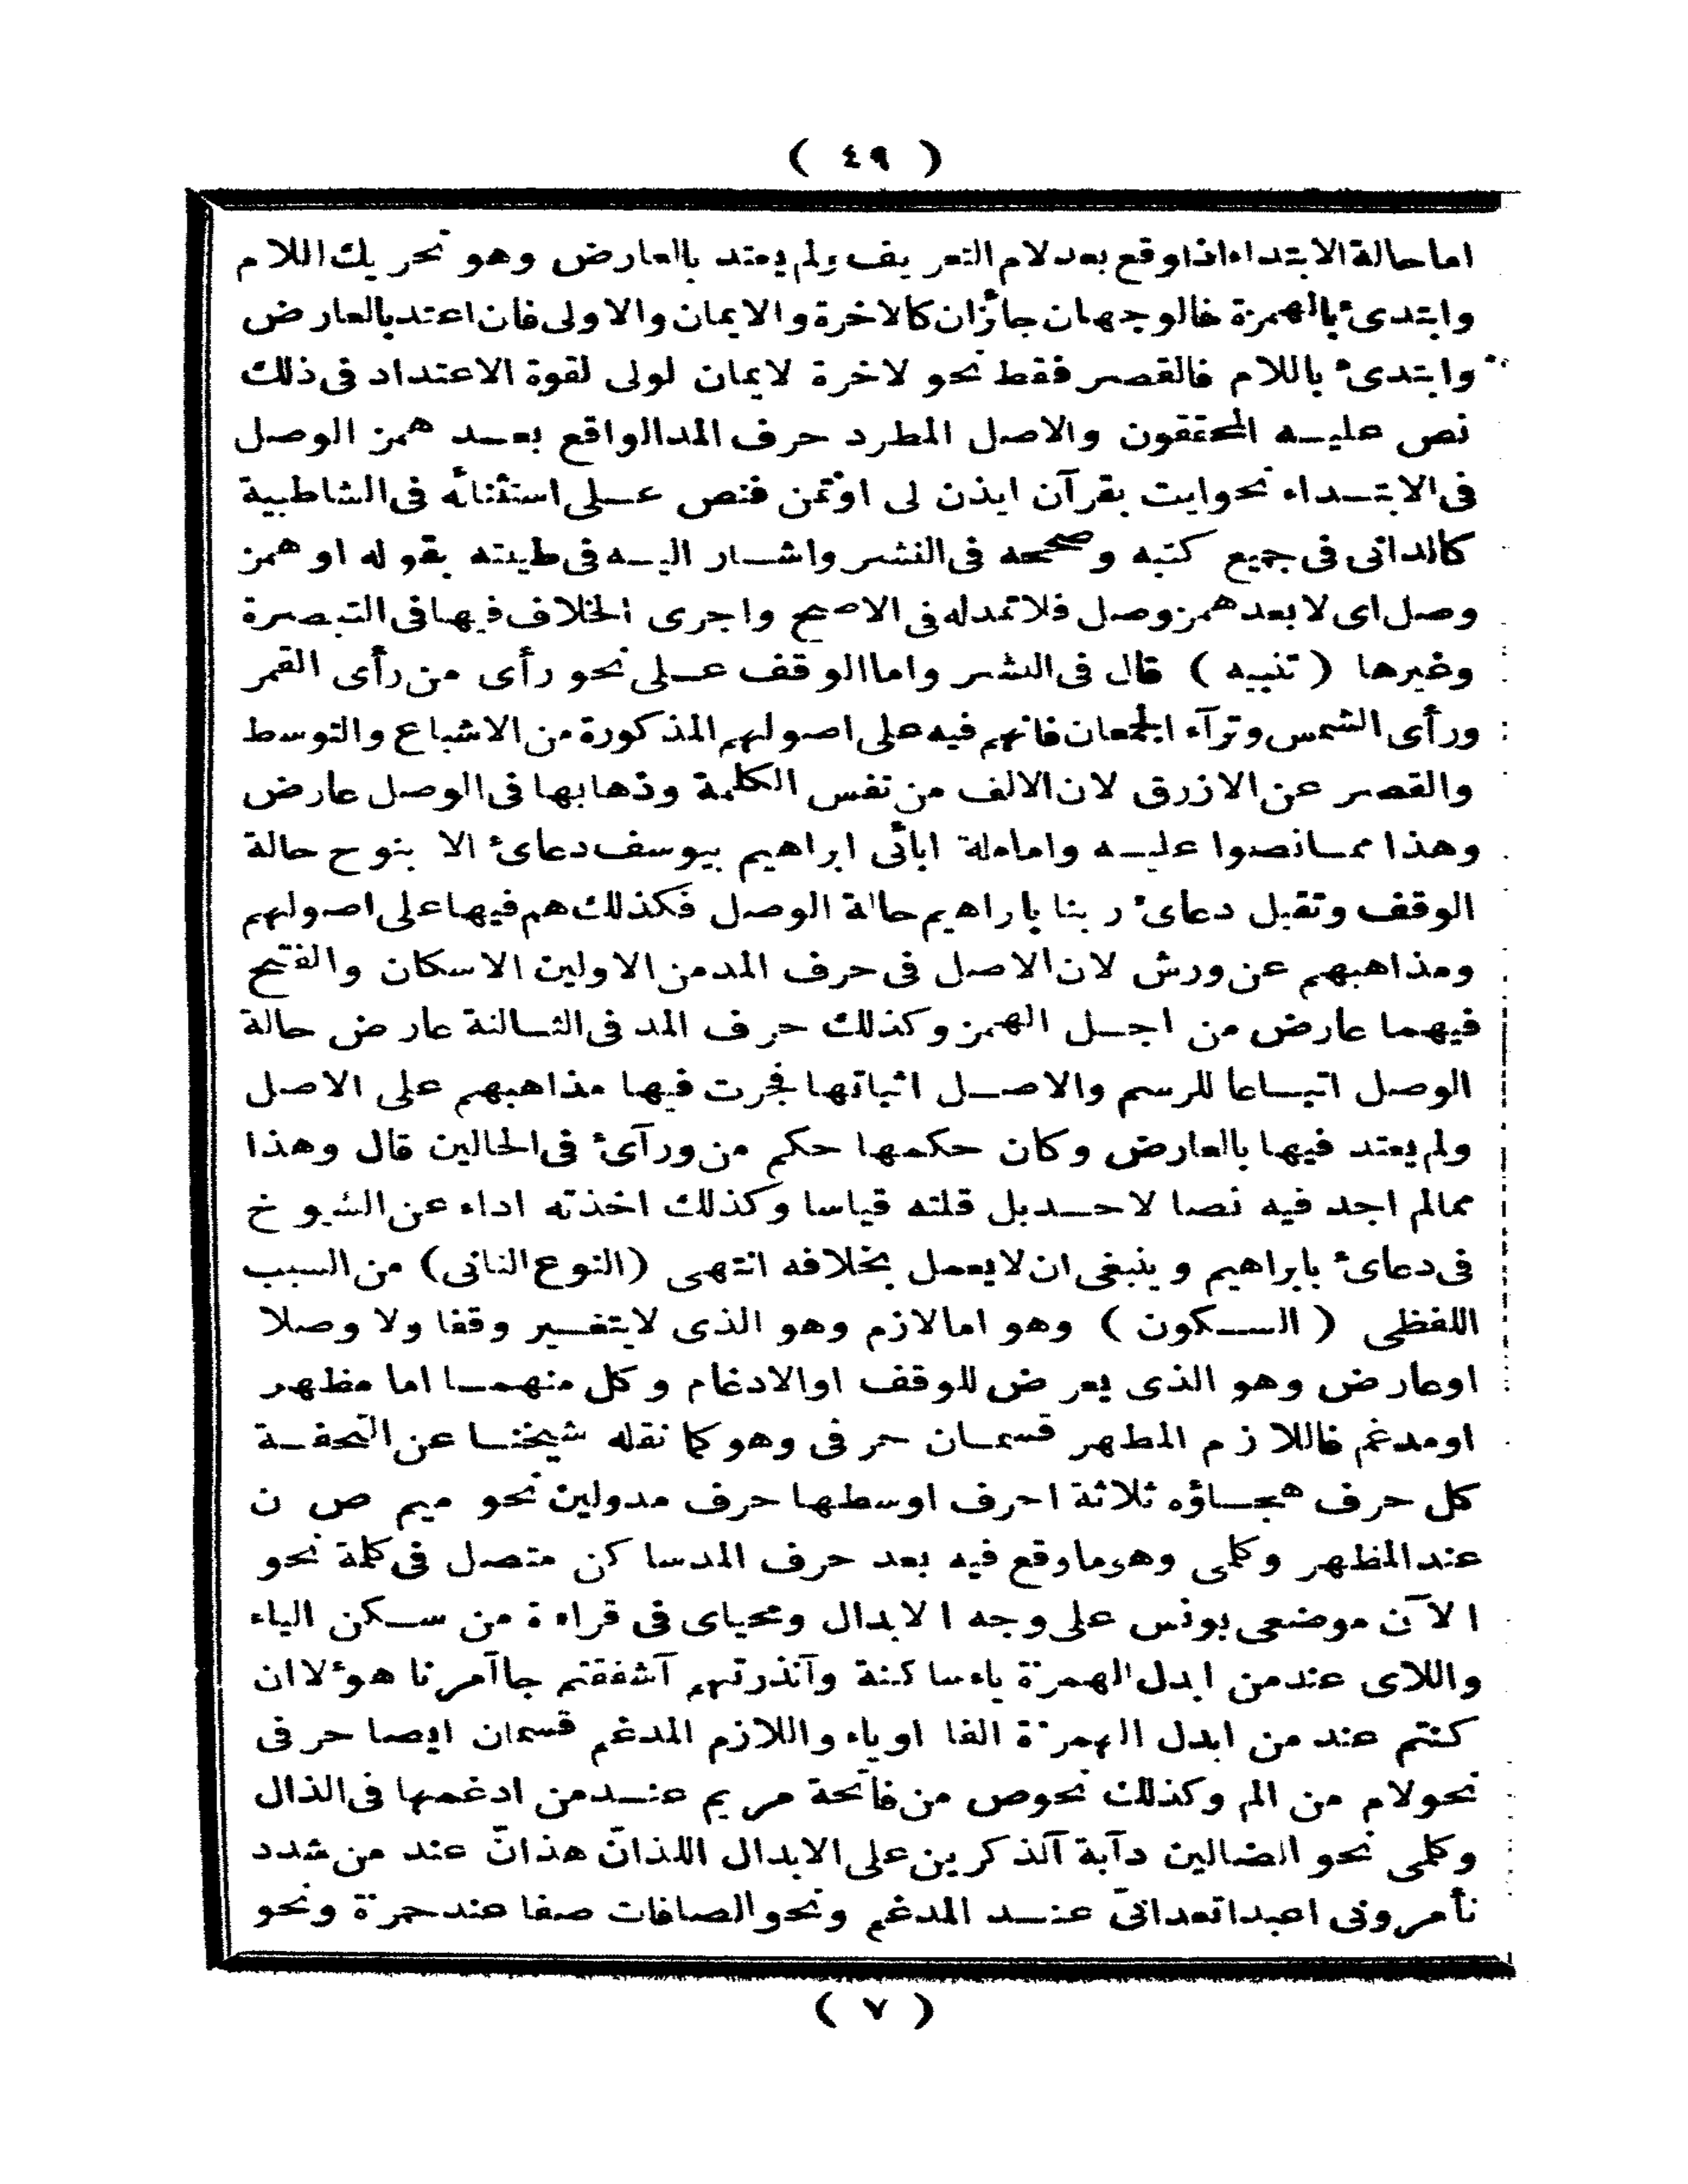 ( ٤٩ )
اما حالة الابتداء اذا وقع بعد لام التعريف ولم يعتد بالعارض وهو تحريك اللام
وابتدئ بالهمزة فالوجهان جائزان كالاخرة والايمان والاولى فان اعتد بالعارض
وابتدئ باللام فالقصر فقط نحو لاخرة لايمان لولى لقوة الاعتداد فى ذلك
نص عليه المحققون والاصل المطرد حرف المد الواقع بعد همز الوصل
فى الابتداء نحو ايت بقرآن ايذن لى اوتمن فنص على استثنائه فى الشاطبية
كالدانى فى جميع كتبه وصححه فى النشر واشار اليه فى طيبته بقوله او همز
وصل اى لا بعد همز وصل فلا تمد له فى الاصح واجرى الخلاف فيها فى التبصرة
وغيرها ( تنبيه ) قال فى النشر واما الوقف على نحو رأى من رأى القمر
ورأى الشمس وترآء الجمعان فانهم فيه على اصولهم المذكورة من الاشباع والتوسط
والقصر عن الازرق لان الالف من نفس الكلمة وذهابها فى الوصل عارض
وهذا مما نصوا عليه واما ملة ابائى ابراهيم بيوسف دعائ الا بنوح حالة
الوقف وتقبل دعائ ربنا بابراهيم حالة الوصل فكذلك هم فيها على اصولهم
ومذاهبهم عن ورش لان الاصل فى حرف المد من الاولين الاسكان والفتح
فيهما عارض من اجل الهمز وكذلك حرف المد فى الثالثة عارض حالة
الوصل اتباعا للرسم والاصل اثباتها فجرت فيها مذاهبهم على الاصل
ولم يعتد فيها بالعارض وكان حكمها حكم من ورآئ فى الحالين قال وهذا
مما لم اجد فيه نصا لاحد بل قلته قياسا وكذلك اخذته اداء عن الشيوخ
فى دعائ بابراهيم وينبغى ان لا يعمل بخلافه انتهى (النوع الثانى) من السبب
اللفظى ( السكون ) وهو اما لازم وهو الذى لا يتغير وقفا ولا وصلا
او عارض وهو الذى يعرض للوقف او الادغام وكل منهما اما مظهر
او مدغم فاللازم المظهر قسمان حرفى وهو كما نقله شيخنا عن التحفة
كل حرف هجاؤه ثلاثة احرف اوسطها حرف مد ولين نحو ميم ص ن
عند المظهر وكلمى وهو ما وقع فيه بعد حرف المد ساكن متصل فى كلمة نحو
الآن موضعى يونس على وجه الابدال ومحياى فى قراءة من سكن الياء
واللاى عند من ابدل الهمزة ياء ساكنة وآنذرتهم آشفقتم جا آمرنا هؤلا ان
كنتم عند من ابدل الهمزة الفا او ياء واللازم المدغم قسمان ايضا حرفى
نحو لام من الم وكذلك نحو ص من فاتحة مريم عند من ادغمها فى الذال
وكلمى نحو الضالين دآبة آلذكرين على الابدال اللذانّ هذانّ عند من شدد
تأمرونى اعبد اتعدانىّ عند المدغم ونحو الصافات صفا عند حمزة ونحو
( ٧ )